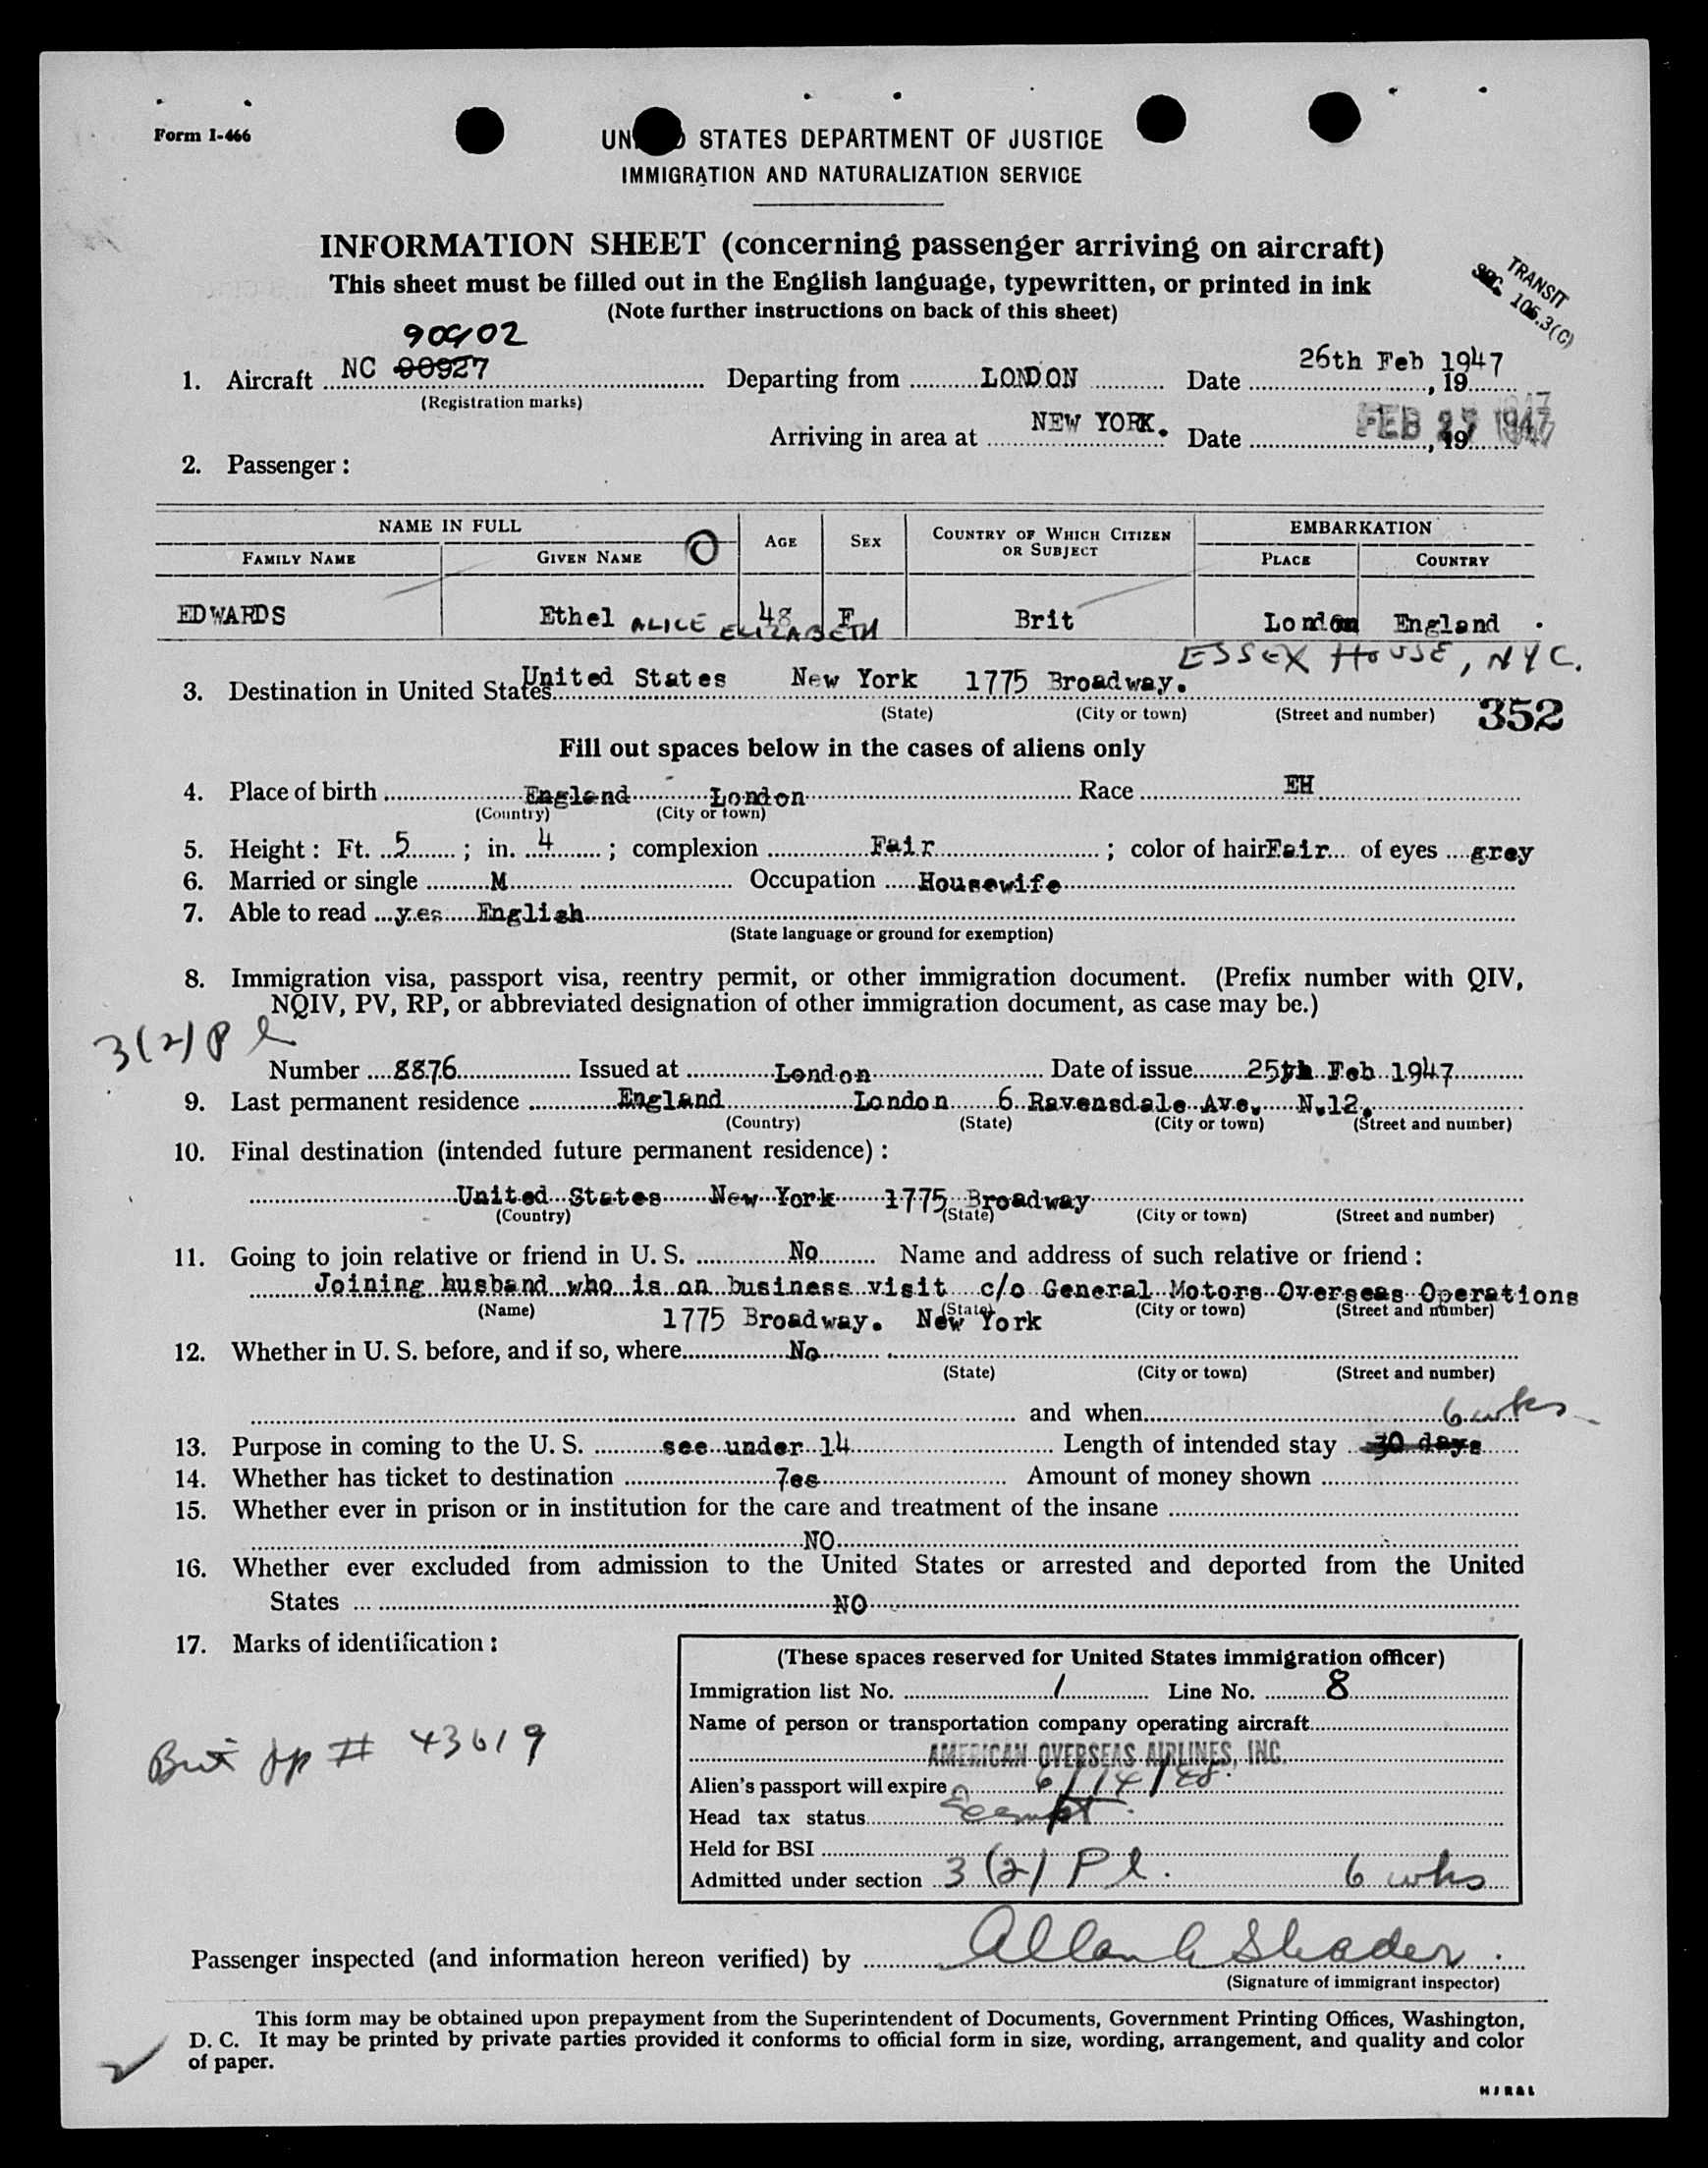 Form I-466
UNITED STATES DEPARTMENT OF JUSTICE
IMMIGRATION AND NATURALIZATION SERVICE
INFORMATION SHEET (concerning passenger arriving on aircraft)
This sheet must be filled out in the English language, typewritten, or printed in ink
(Note further instructions on back of this sheet)
TRANSIT
SEC. 106.3(C)
90902
1. Aircraft NC 90927 Departing from LONDON Date 26th Feb 1947, 19
(Registration marks)
Arriving in area at NEW YORK. Date FEB 27 1947, 19
2. Passenger:
NAME IN FULL AGE SEX COUNTRY OF WHICH CITIZEN OR SUBJECT EMBARKATION
FAMILY NAME GIVEN NAME PLACE COUNTRY
EDWARDS Ethel ALICE ELIZABETH 48 F Brit London England
ESSEX HOUSE, NYC.
3. Destination in United States United States New York 1775 Broadway.
(State) (City or town) (Street and number) 352
Fill out spaces below in the cases of aliens only
4. Place of birth England London Race EH
(Country) (City or town)
5. Height: Ft. 5; in. 4; complexion Fair; color of hair Fair of eyes grey
6. Married or single M Occupation Housewife
7. Able to read yes English
(State language or ground for exemption)
8. Immigration visa, passport visa, reentry permit, or other immigration document. (Prefix number with QIV,
NQIV, PV, RP, or abbreviated designation of other immigration document, as case may be.)
3(2) Pl
Number 8876 Issued at London Date of issue 25th Feb 1947
9. Last permanent residence England London 6 Ravensdale Ave. N.12.
(Country) (State) (City or town) (Street and number)
10. Final destination (intended future permanent residence):
United States New York 1775 Broadway
(Country) (State) (City or town) (Street and number)
11. Going to join relative or friend in U. S. No Name and address of such relative or friend:
Joining husband who is on business visit c/o General Motors Overseas Operations
(Name) (State) (City or town) (Street and number)
1775 Broadway. New York
12. Whether in U. S. before, and if so, where No
(State) (City or town) (Street and number)
and when
6 wks
13. Purpose in coming to the U. S. see under 14 Length of intended stay 30 days
14. Whether has ticket to destination 7es Amount of money shown
15. Whether ever in prison or in institution for the care and treatment of the insane
NO
16. Whether ever excluded from admission to the United States or arrested and deported from the United
States NO
17. Marks of identification:
Brit pp # 43619
(These spaces reserved for United States immigration officer)
Immigration list No. 1 Line No. 8
Name of person or transportation company operating aircraft
AMERICAN OVERSEAS AIRLINES, INC.
Alien's passport will expire 6/14/48
Head tax status Exempt
Held for BSI
Admitted under section 3(2) Pl. 6 wks
Passenger inspected (and information hereon verified) by Allan Shader
(Signature of immigrant inspector)
This form may be obtained upon prepayment from the Superintendent of Documents, Government Printing Offices, Washington,
D. C. It may be printed by private parties provided it conforms to official form in size, wording, arrangement, and quality and color
of paper.